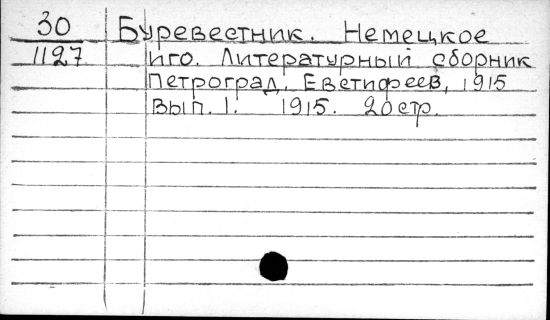 30 Буревестник. Немецкое
1127 иго. Литературный сборник
Петроград, Евстифеев, 1915
Вып. 1. 1915. 20 стр.